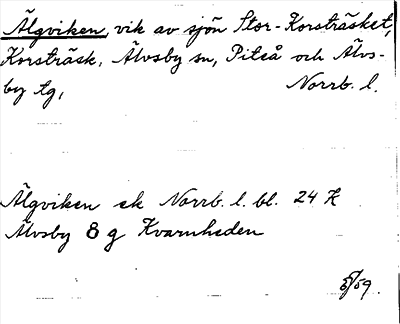 Älgviken, vik av sjön Stor-Korsträsket,
Korsträsk, Älvsby sn, Piteå och Älvs-
by tg, Norrb. l.
Älgviken ek Norrb. l. bl. 24 K
Älvsby 8 g Kvarnheden
5/59.